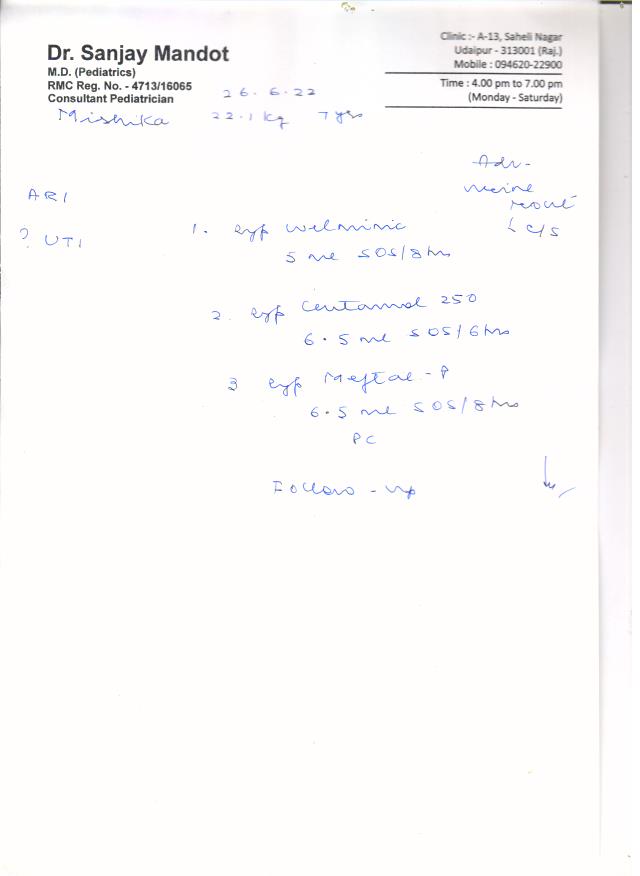 Dr. Sanjay Mandot
M.D. (Pediatrics)
RMC Reg. No. - 4713/16065
Consultant Pediatrician
Clinic :- A-13, Saheli Nagar
Udaipur - 313001 (Raj.)
Mobile : 094620-22900
Time : 4.00 pm to 7.00 pm
(Monday - Saturday)
26.6.22
Mishika 22.1 kg 7 yrs
Adv-
urine
c/s
ARI
? UTI
1. syp
5 ml SOS/8 hrs
2. syp 250
6.5 ml SOS/6 hrs
3 syp Meftal-P
6.5 ml SOS/8 hrs
PC
Follow-up